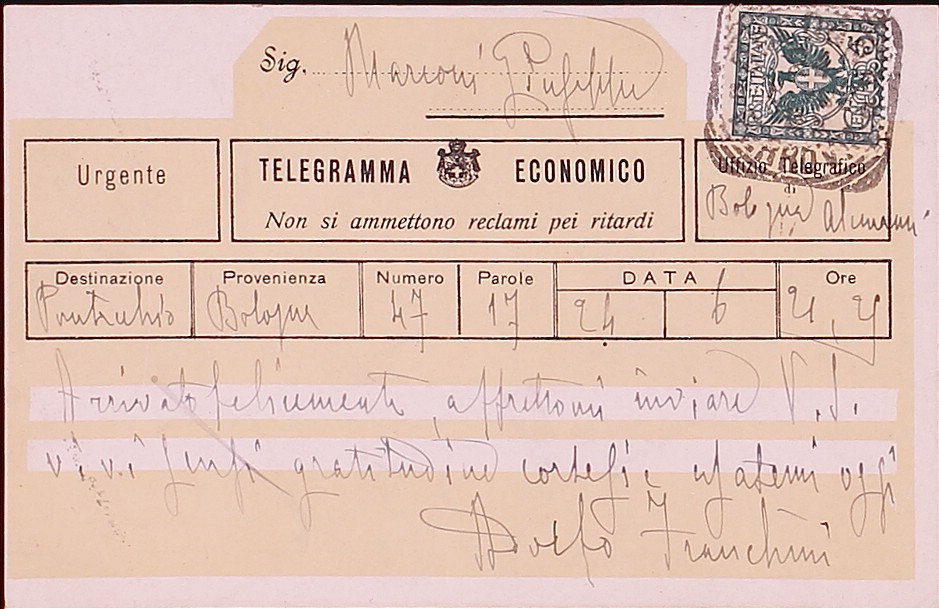 Sig. Marconi Giuseppe
POSTE ITALIANE
CENTESIMI 5
Urgente
TELEGRAMMA ECONOMICO
Non si ammettono reclami pei ritardi
Uffizio Telegrafico
di
Bologna
Destinazione Provenienza Numero Parole DATA Ore
Pontecchio Bologna 47 17 24 6 21,25
Arrivato felicemente affrettomi inviare V.S.
vivi sensi gratitudine cortesie usatemi oggi
Adolfo Franchini